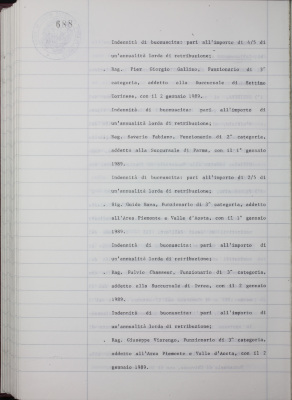 688
Indennità di buonuscita: pari all'importo di 4/5 di
un'annualità lorda di retribuzione;
. Rag. Pier Giorgio Gallino, Funzionario di 3^ categoria, addetto alla Succursale di Settimo
Torinese, con il 2 gennaio 1989.
Indennità di buonuscita: pari all'importo di
un'annualità lorda di retribuzione;
. Rag. Saverio Fabiano, Funzionario di 2^ categoria,
addetto alla Succursale di Parma, con il 1° gennaio
1989.
Indennità di buonuscita: pari all'importo di 2/5 di
un'annualità lorda di retribuzione;
. Sig. Guido Nava, Funzionario di 3^ categoria, addetto
all'Area Piemonte e Valle d'Aosta, con il 1° gennaio
1989.
Indennità di buonuscita: pari all'importo di
un'annualità lorda di retribuzione;
. Rag. Fulvio Chasseur, Funzionario di 3^ categoria,
addetto alla Succursale di con il 2 gennaio
1989.
Indennità di buonuscita: pari all'importo di
un'annualità lorda di retribuzione;
. Rag. Giuseppe Vinengo, Funzionario di 3^ categoria,
addetto all'Area Piemonte e Valle d'Aosta, con il 2
gennaio 1989.